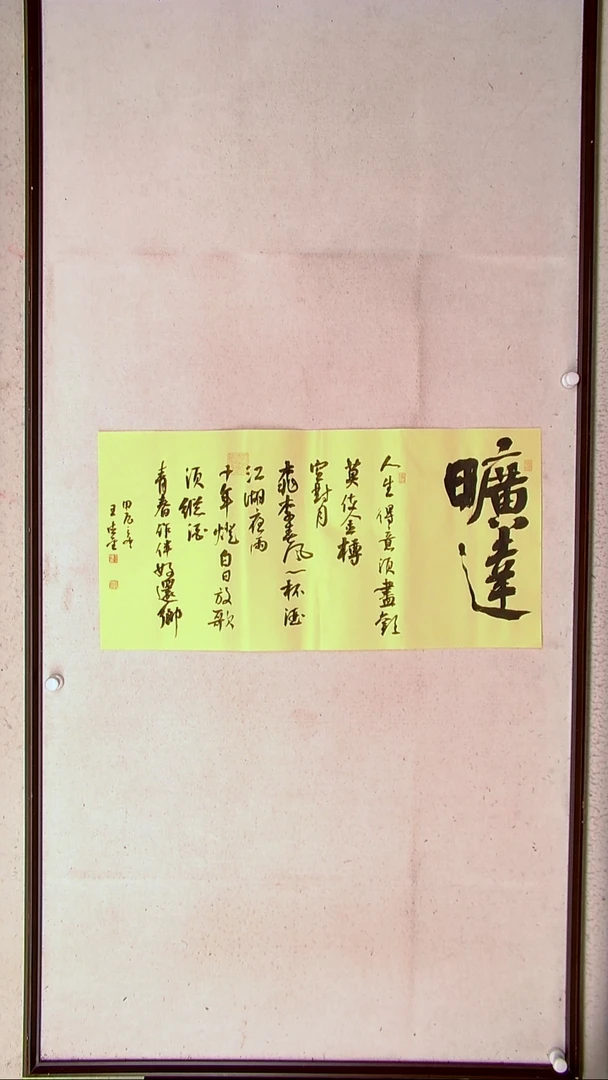 曠達
人生得意須盡歡
莫使金樽
空對月
桃李春風一杯酒
江湖夜雨
十年燈白日放歌
須縱酒
青春作伴好還鄉
甲辰
王